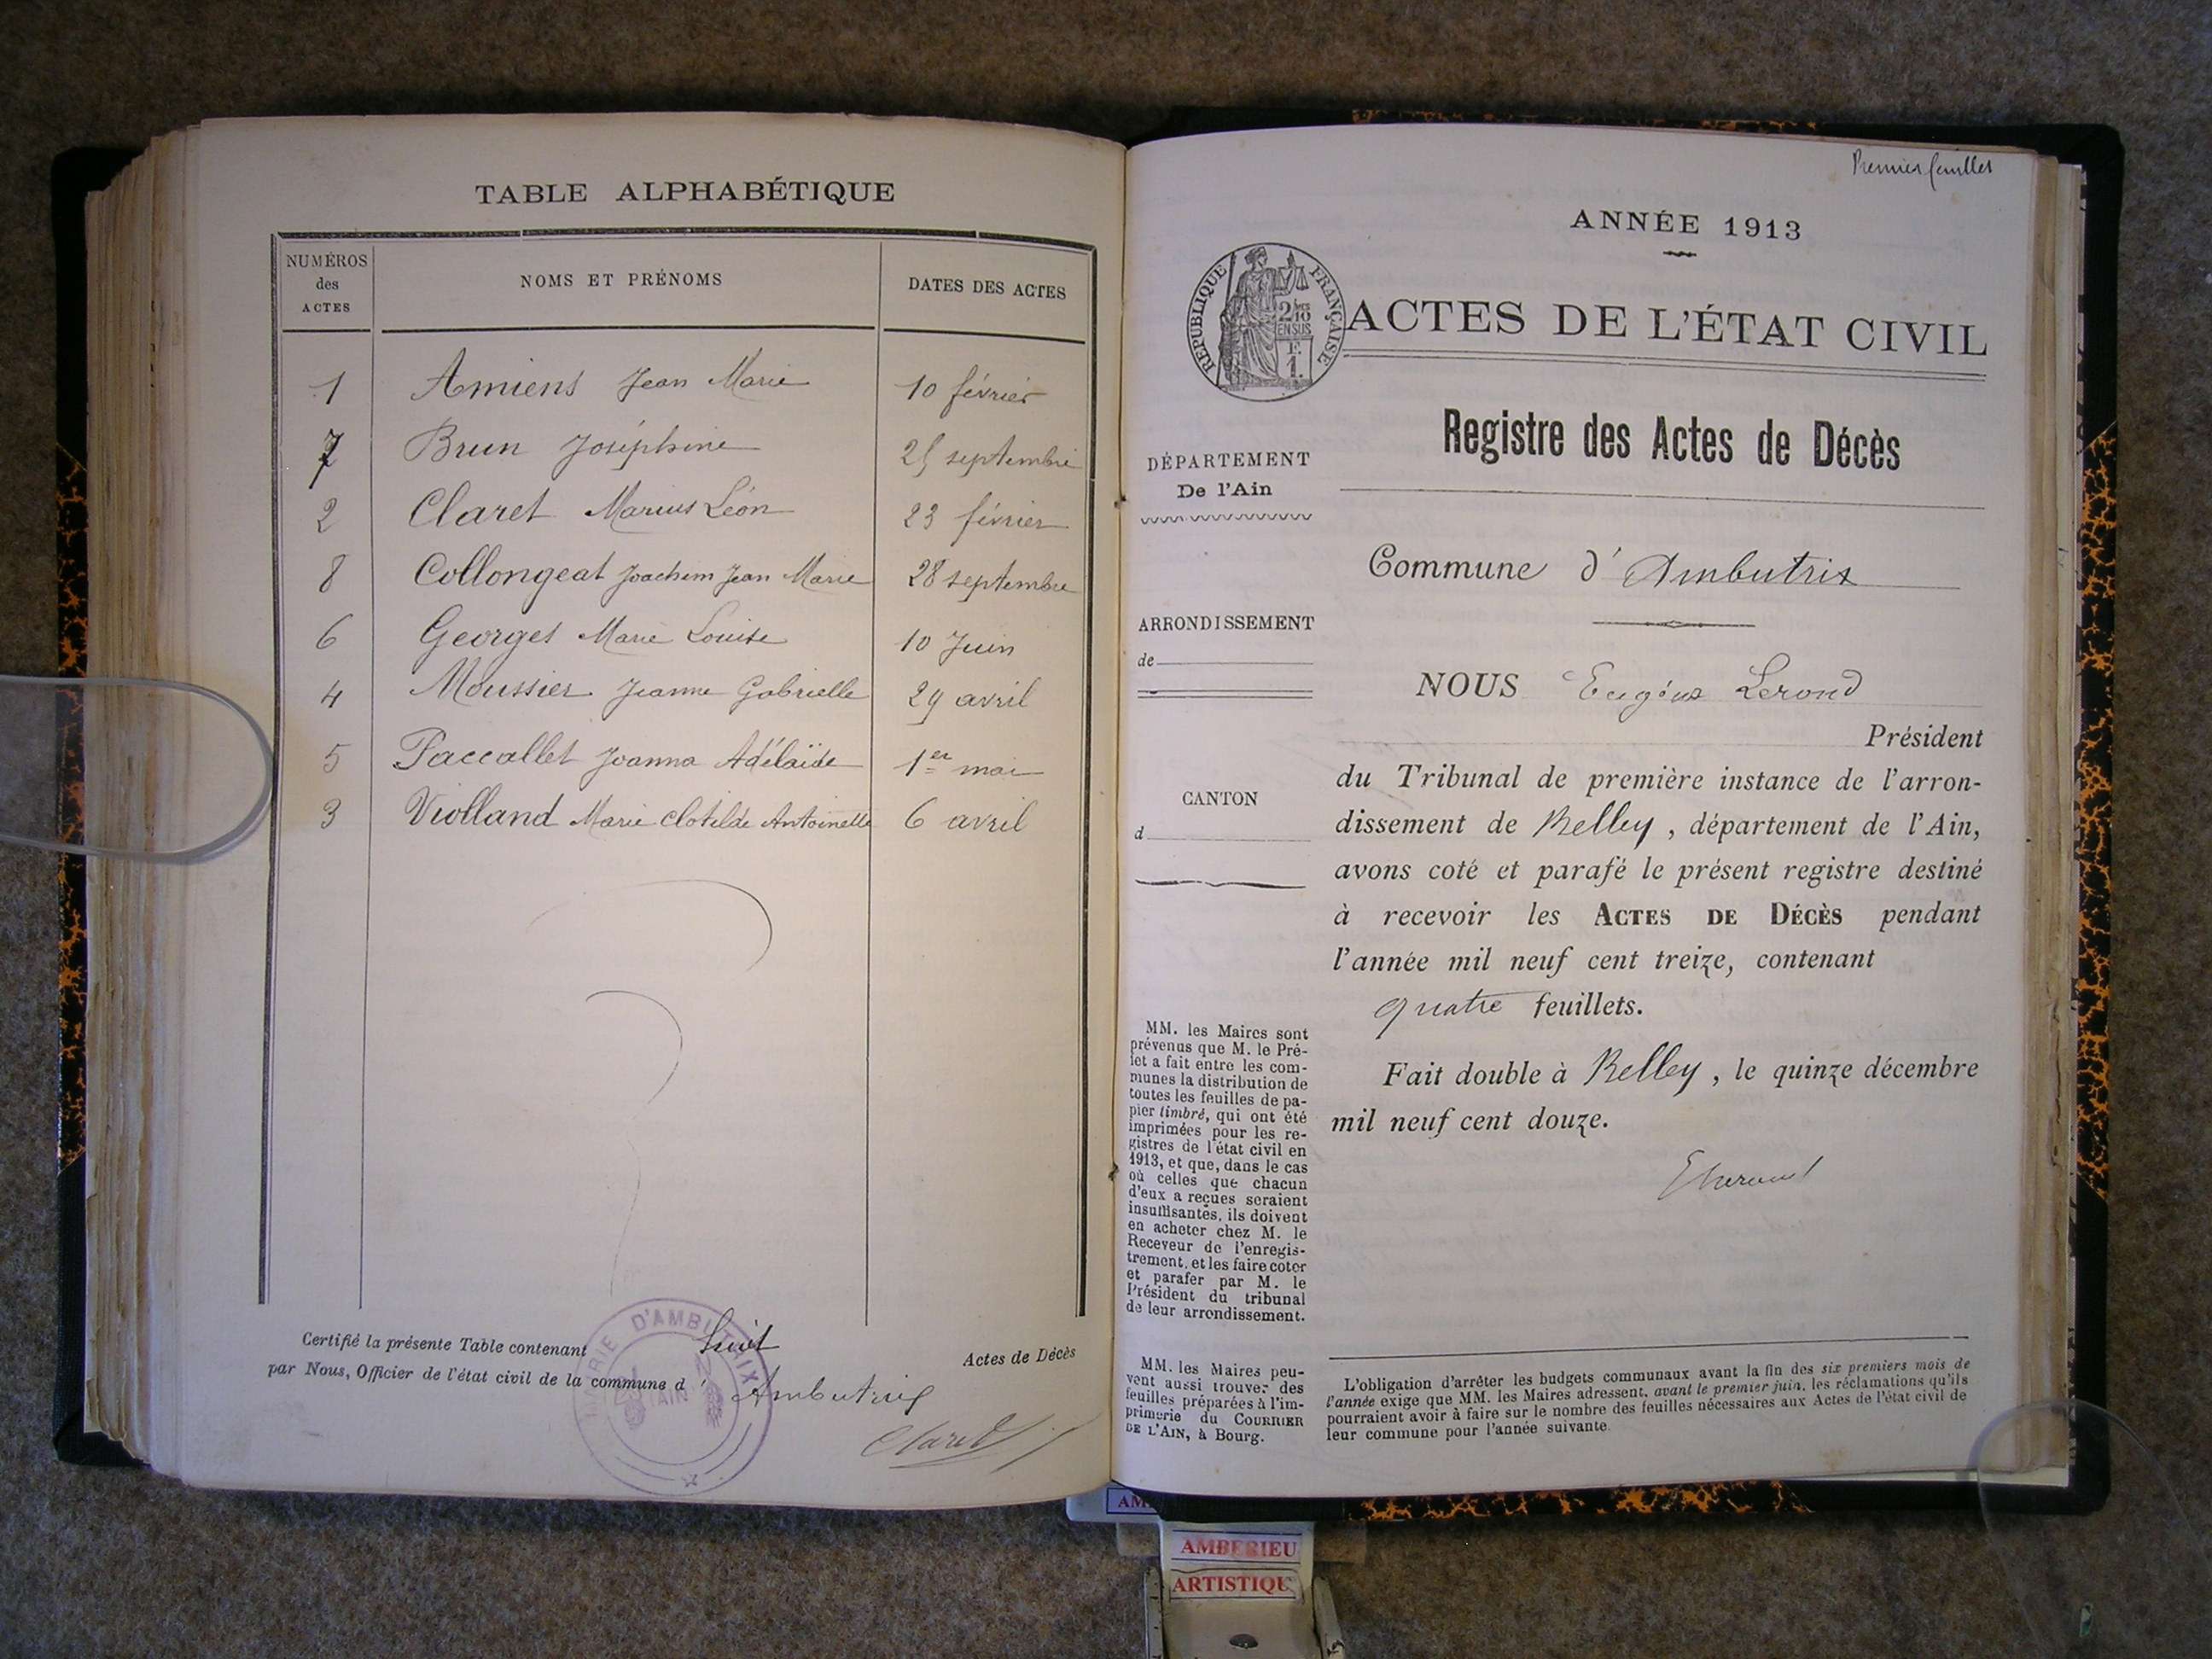 TABLE ALPHABÉTIQUE
NUMÉROS
des
ACTES
NOMS ET PRÉNOMS
DATES DES ACTES
1 Amiens Jean Marie 10 février
7 Brun Joséphine 25 septembre
2 Claret Marius Léon 23 février
8 Collongeat Joachim Jean Marie 28 septembre
6 Georges Marie Louise 10 Juin
4 Moussier Jeanne Gabrielle 29 avril
5 Paccallet Joanna Adélaïde 1er mai
3 Violland Marie Clotilde Antoinette 6 avril
Certifié la présente Table contenant huit Actes de Décès
par Nous, Officier de l'état civil de la commune d' Ambutrix
Claret
MAIRIE D'AMBUTRIX
AIN
Premier feuillet
ANNÉE 1913
RÉPUBLIQUE FRANÇAISE
2/10
EN SUS
F.
1.
ACTES DE L'ÉTAT CIVIL
Registre des Actes de Décès
DÉPARTEMENT
De l'Ain
Commune d'Ambutrix
ARRONDISSEMENT
de
NOUS Eugène Lerond
Président
CANTON
d
du Tribunal de première instance de l'arron-
dissement de Belley, département de l'Ain,
avons coté et parafé le présent registre destiné
à recevoir les ACTES DE DÉCÈS pendant
l'année mil neuf cent treize, contenant
quatre feuillets.
Fait double à Belley, le quinze décembre
mil neuf cent douze.
MM. les Maires sont
prévenus que M. le Pré-
fet a fait entre les com-
munes la distribution de
toutes les feuilles de pa-
pier timbré, qui ont été
imprimées pour les re-
gistres de l'état civil en
1913, et que, dans le cas
où celles que chacun
d'eux a reçues seraient
insuffisantes, ils doivent
en acheter chez M. le
Receveur de l'enregis-
trement, et les faire coter
et parafer par M. le
Président du tribunal
de leur arrondissement.
MM. les Maires peu-
vent aussi trouver des
feuilles préparées à l'im-
primerie du COURRIER
DE L'AIN, à Bourg.
L'obligation d'arrêter les budgets communaux avant la fin des six premiers mois de
l'année exige que MM. les Maires adressent, avant le premier juin, les réclamations qu'ils
pourraient avoir à faire sur le nombre des feuilles nécessaires aux Actes de l'état civil de
leur commune pour l'année suivante.
AM
AMBERIEU
ARTISTIQU